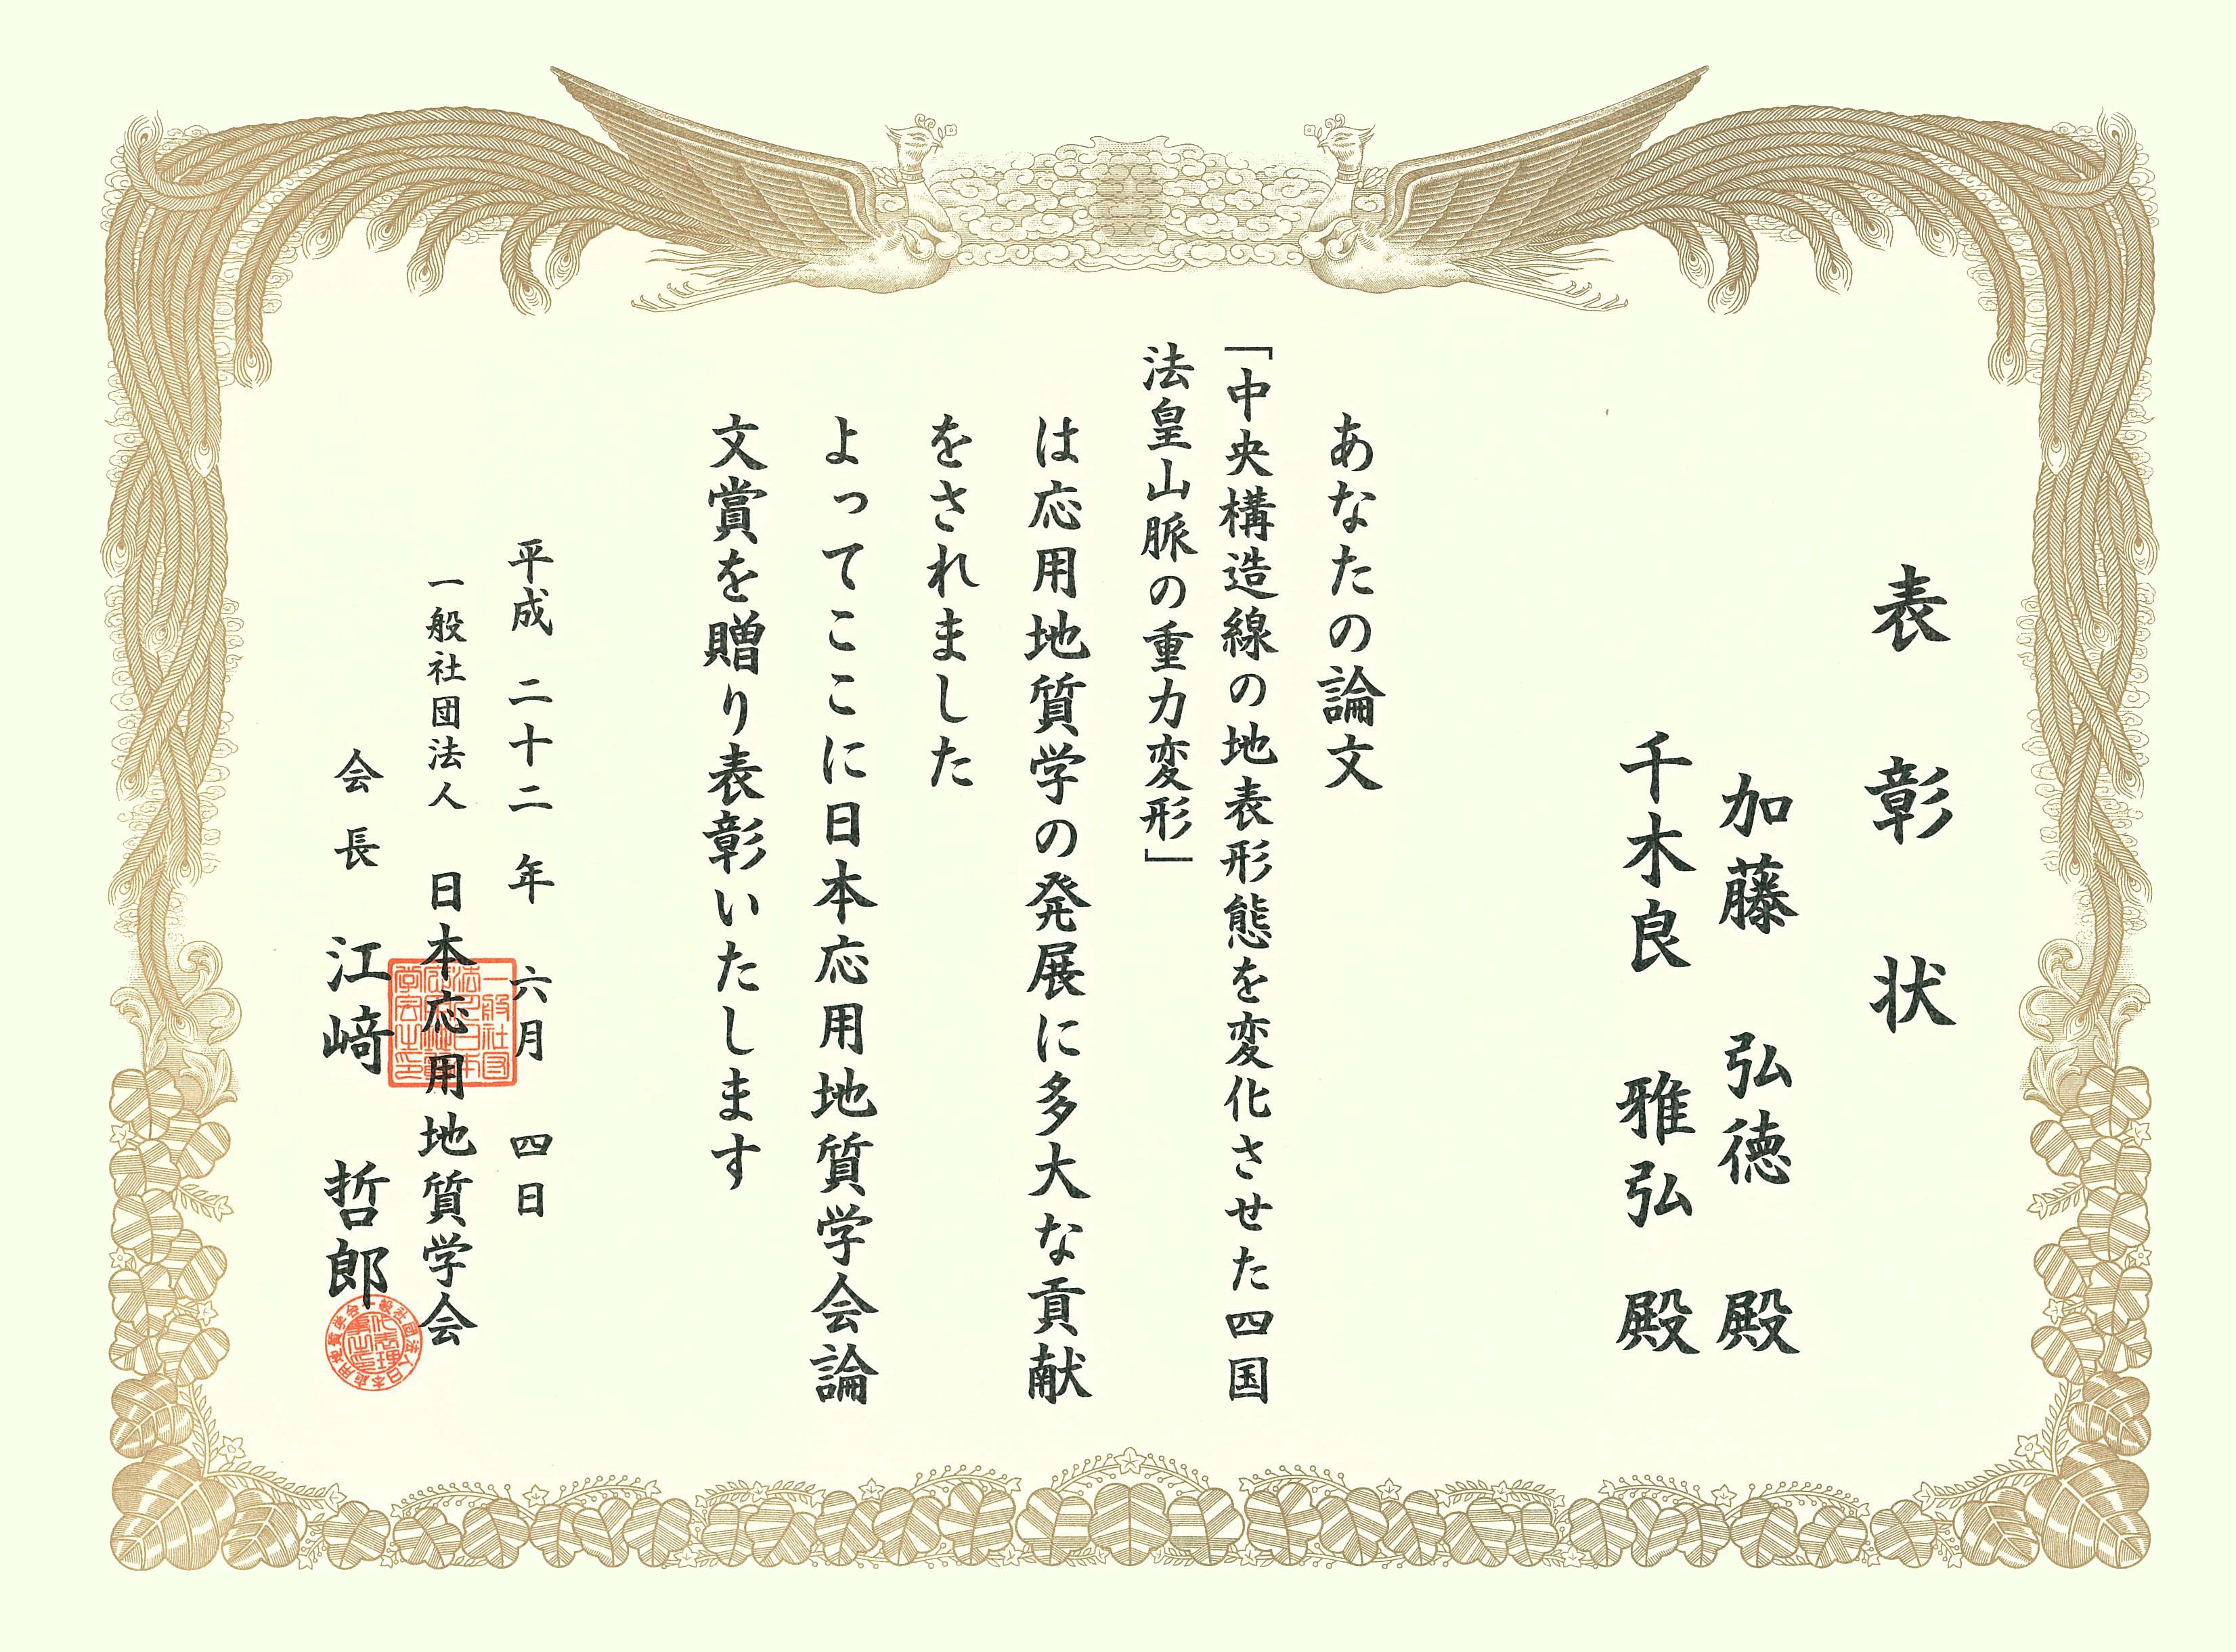 表彰状
加藤 弘徳 殿
千木良 雅弘 殿
あなたの論文
「中央構造線の地表形態を変化させた四国
法皇山脈の重力変形」
は応用地質学の発展に多大な貢献
をされました
よってここに日本応用地質学会論
文賞を贈り表彰いたします
平成 二十二 年 六月 四日
一般社団法人 日本応用地質学会
会長 江﨑 哲郎